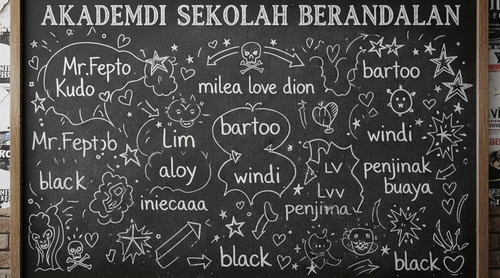 AKADEMDI SEKOLAH BERANDALAN
Mr.Fepto
Kudo
milea love dion
bartoo
Mr.Feptob
Lim
aloy
bartoo
windi
windi
LV
Lvv
penjinak
buaya
black
iniecaaa
penjima
black
black